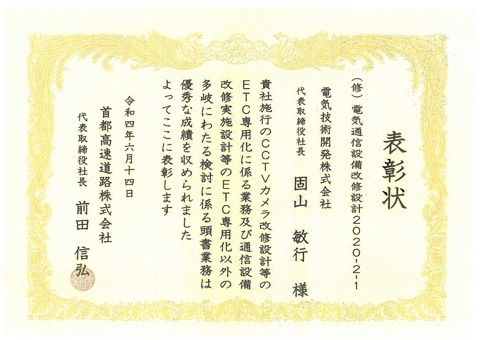 表彰状
(修)電気通信設備改修設計2020-2-1
電気技術開発株式会社
代表取締役社長 固山 敏行 様
貴社施行のCCTVカメラ改修設計等の
ETC専用化に係る業務及び通信設備
改修実施設計等のETC専用化以外の
多岐にわたる検討に係る頭書業務は
優秀な成績を収められました
よってここに表彰します
令和四年六月十四日
首都高速道路株式会社
代表取締役社長 前田 信弘